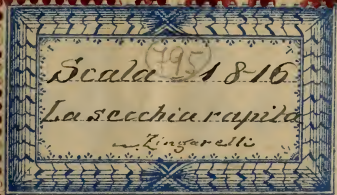 (795)
Scala 18-16
La secchia rapita
Zingarelli